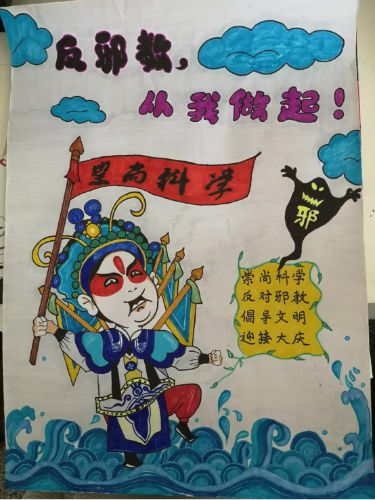 反邪教，
从我做起！
崇尚科学
邪
崇尚科学
反对邪教
倡导文明
迎接大庆